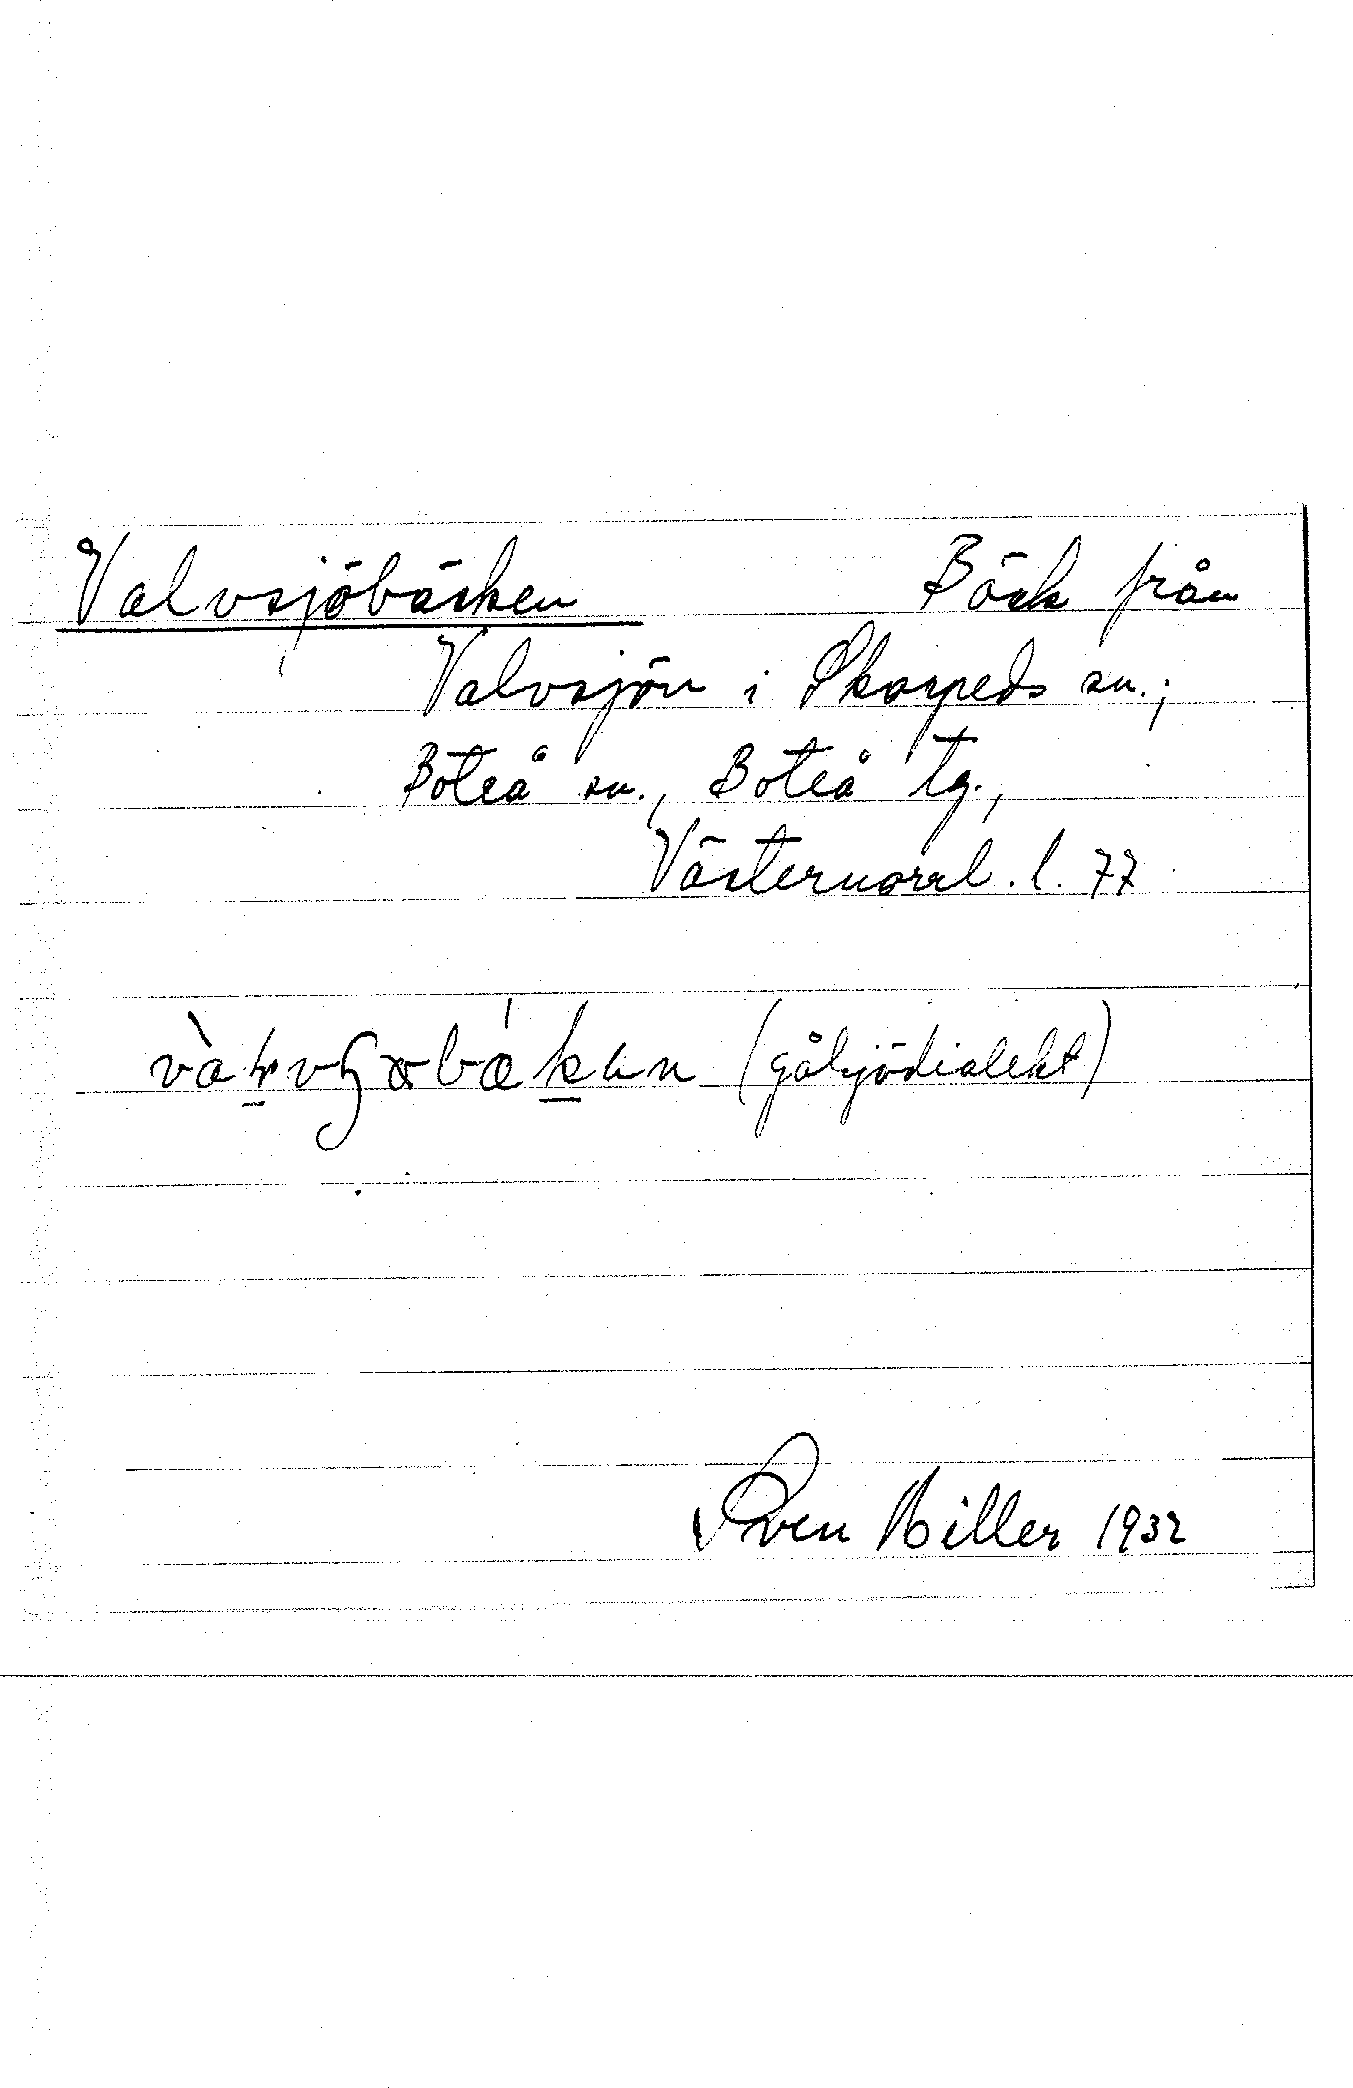 Valvsjöbäcken Bäck från
Valvsjön i Skorpeds sn.;
Boteå sn., Boteå tg.,
Västernorrl. l. 77
(gålsjödialekt)
Sven Hiller 1932